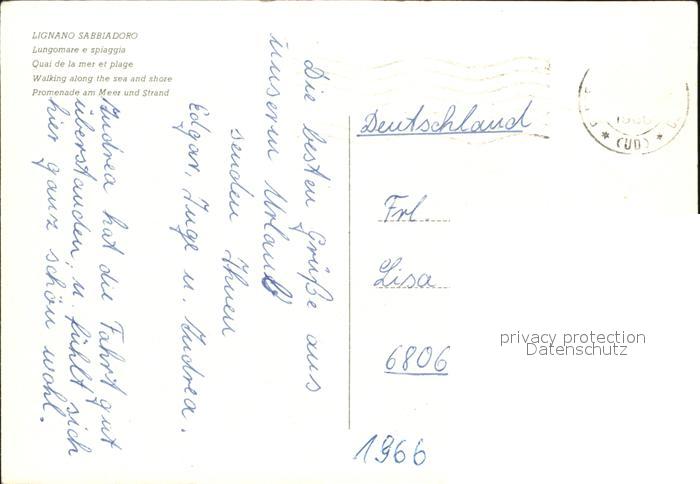 LIGNANO SABBIADORO
Lungomare e spiaggia
Quai de la mer et plage
Walking along the sea and shore
Promenade am Meer und Strand
Die besten Grüße aus
unserem Urlaub
senden Ihnen
Edgar, Inge u. Andrea.
Andrea hat die Fahrt gut
überstanden, u. fühlt sich
hier ganz schön wohl.
Deutschland
Frl.
Lisa
6806
1966
* (UD) *
privacy protection
Datenschutz